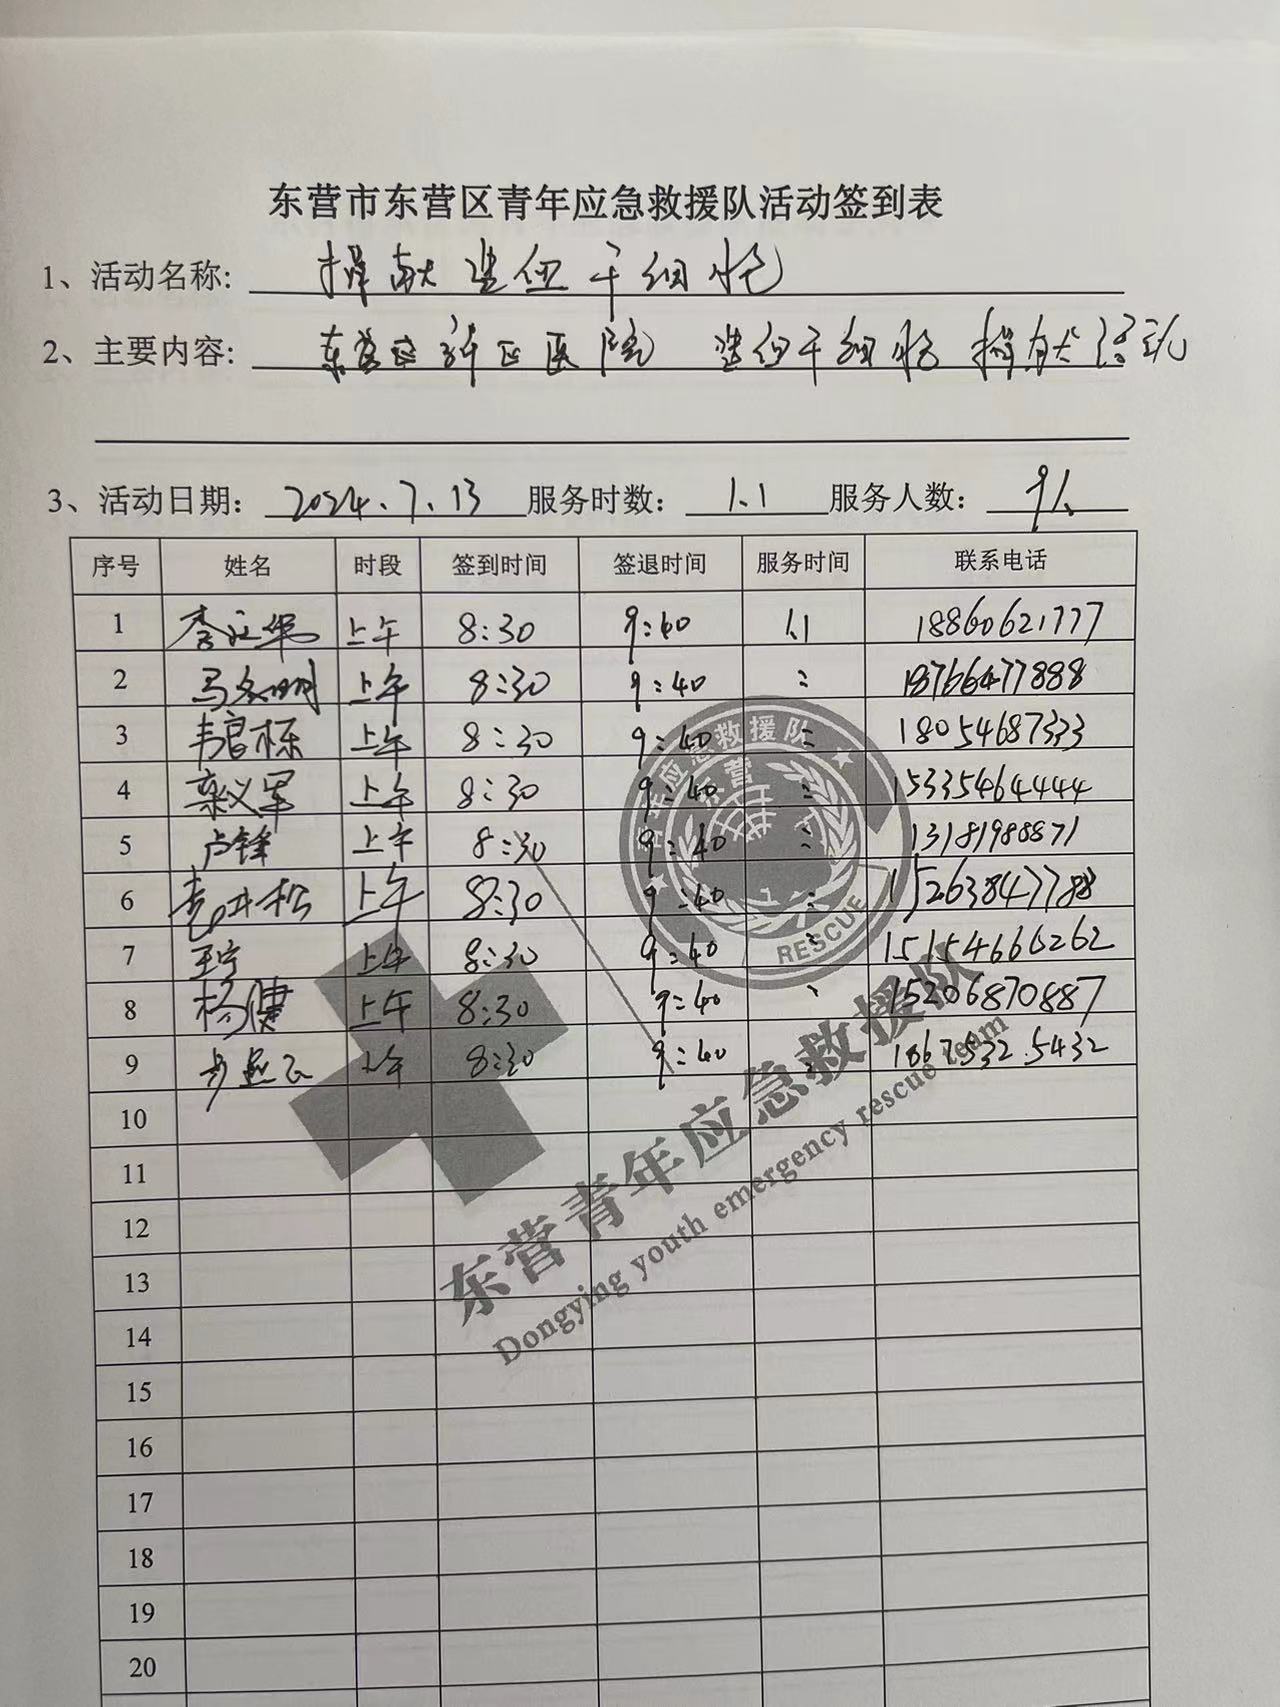 东营市东营区青年应急救援队活动签到表
1、活动名称: 捐献造血干细胞
2、主要内容: 东营区 医院 造血干细胞 捐献活动
3、活动日期: 2024.7.13 服务时数: 1.1 服务人数: 9人
序号 姓名 时段 签到时间 签退时间 服务时间 联系电话
1 李 华 上午 8:30 9:40 1.1 18860621777
2 马冬明 上午 8:30 9:40 : 18766477888
3 韦良栋 上午 8:30 9:40 : 18054687333
4 义军 上午 8:30 9:40 : 15335464444
5 卢锋 上午 8:30 9:40 : 13181988871
6 井松 上午 8:30 9:40 : 15263847788
7 王宁 上午 8:30 9:40 : 15154666262
8 杨健 上午 8:30 9:40 15206870887
9 上午 8:30 9:40 :
10
11
12
13
14
15
16
17
18
19
20
青年应急救援队
东营
RESCUE
东营青年应急救援队
Dongying youth emergency rescue team